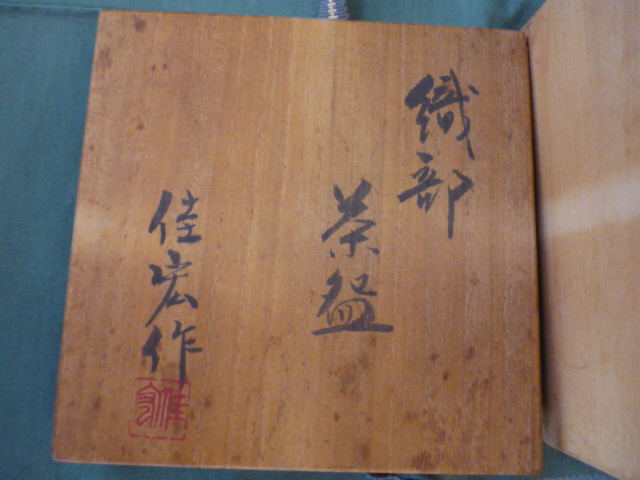 織部
茶盌
佳宏作